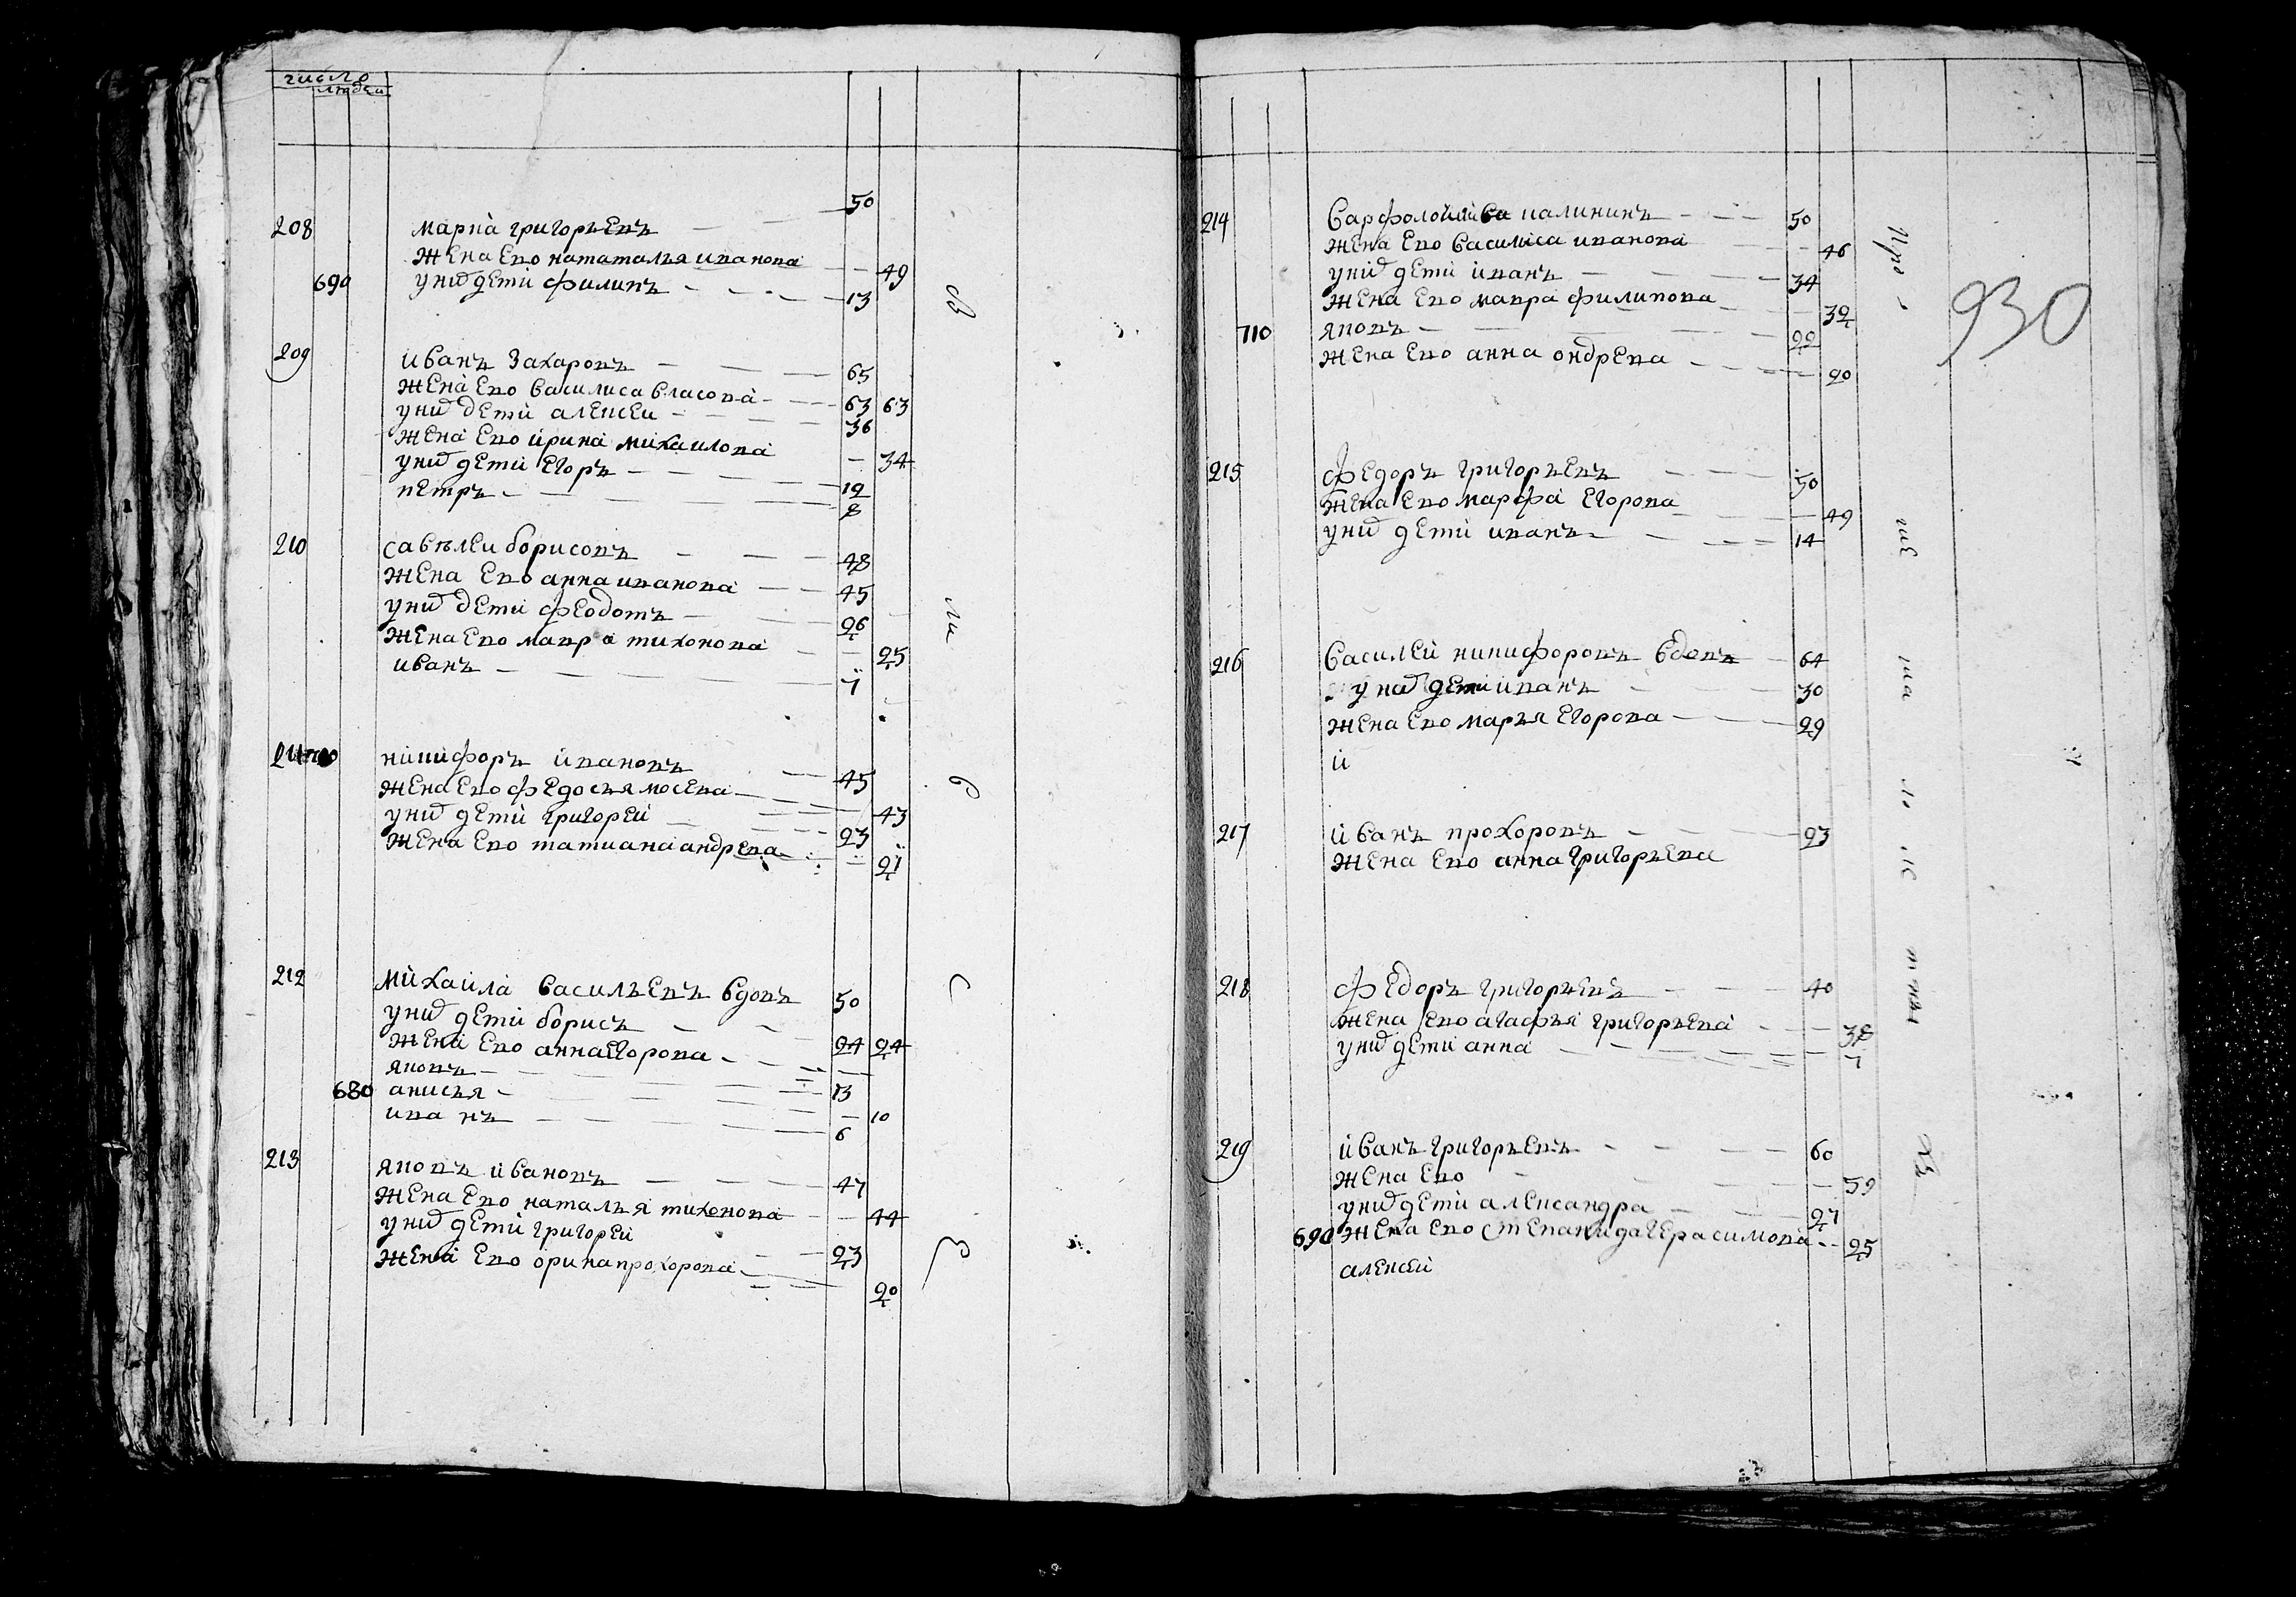 число
людей
50
208 марка григорьевъ
жена ево нататалья иванова 49
690 у них дети филипъ 13
209 иванъ захаровъ 65
жена ево василиса власова 63 63
у них дети алексеи 36
жена ево ирина михаилова 34
у них дети егоръ 12
петръ 8
210 савѣлеи борисовъ 48
жена ево анна иванова 45
у них дети феодотъ 26
жена ево мавра тихонова 25
иванъ 7
никифоръ ивановъ 45
жена ево федосья мосева 43
у них дети григореи 23
жена ево татиана андрева 21
212 михаила васильевъ вдовъ 50
у них дети борисъ 24
жена ево анна егорова 24
яковъ 13
680 анисья 10
иванъ 6
213 яковъ ивановъ 47
жена ево наталья тихонова 44
у них дети григореи 23
жена ево орина прохорова 20
214 варфоломей калининъ 50
жена ево василиса иванова 46
у них дети иванъ 34
жена ево мавра филипова 32
710 яковъ 22
жена ево анна ондрева 20
930
215 федоръ григорьевъ 50
жена ево марфа егорова 49
у них дети иванъ 14
216 василей никифоровъ вдовъ 64
у них дети иванъ 30
жена ево марья егорова 29
и
217 иванъ прохоровъ 23
жена ево анна григорьева
218 федоръ григорьевъ 40
жена ево агафья григорьева 38
у них дети анна 7
219 иванъ григорьевъ 60
жена ево 59
у них дети александра 27
690 жена ево степанида герасимова 25
алексей